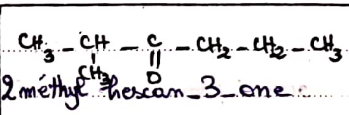 CH3 - CH - C - CH2 - CH2 - CH3
CH3 O
2 méthyl hexan-3-one